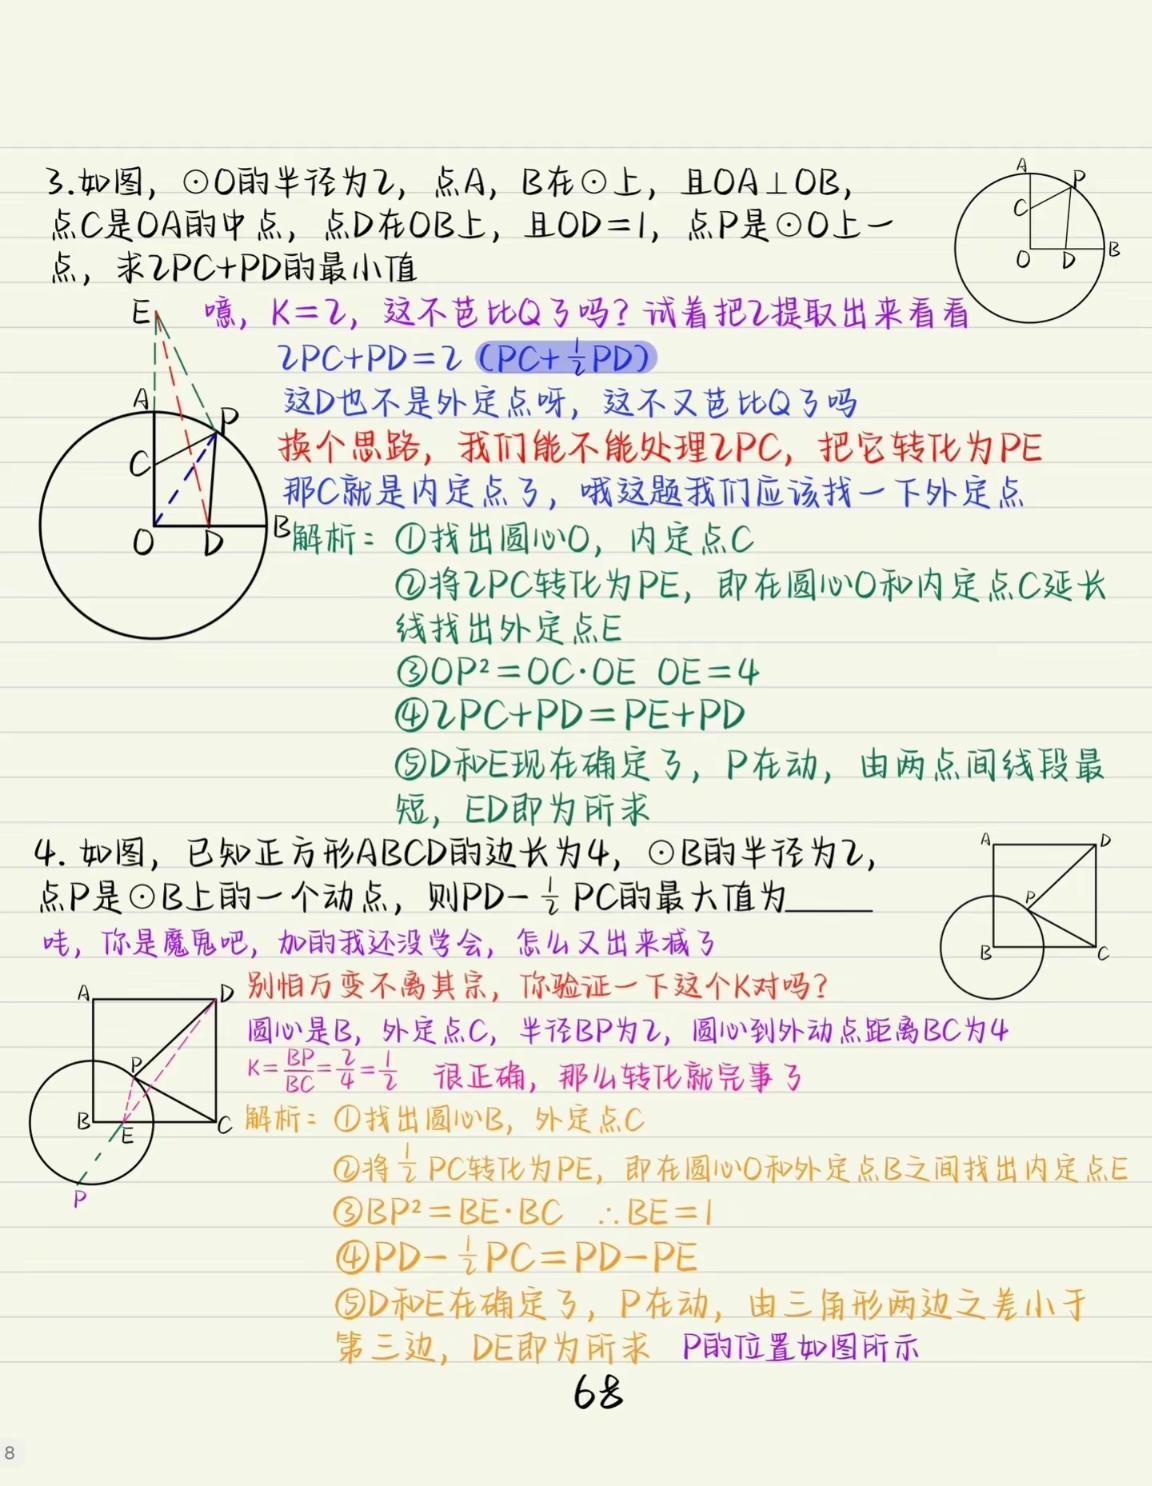 3.如图，⊙O的半径为2，点A，B在⊙上，且OA⊥OB，
点C是OA的中点，点D在OB上，且OD=1，点P是⊙O上一
点，求2PC+PD的最小值
A
P
C
O
D
B
E
噫，K=2，这不芭比Q了吗？试着把2提取出来看看
2PC+PD=2（PC+½PD）
这D也不是外定点呀，这不又芭比Q了吗
换个思路，我们能不能处理2PC，把它转化为PE
那C就是内定点了，哦这题我们应该找一下外定点
A
P
C
O
D
B
解析：①找出圆心O，内定点C
②将2PC转化为PE，即在圆心O和内定点C延长
线找出外定点E
③OP²=OC·OE OE=4
④2PC+PD=PE+PD
⑤D和E现在确定了，P在动，由两点间线段最
短，ED即为所求
4. 如图，已知正方形ABCD的边长为4，⊙B的半径为2，
点P是⊙B上的一个动点，则PD-½PC的最大值为____
A
D
P
B
C
哇，你是魔鬼吧，加的我还没学会，怎么又出来减了
别怕万变不离其宗，你验证一下这个K对吗？
圆心是B，外定点C，半径BP为2，圆心到外动点距离BC为4
K=BP/BC=2/4=1/2 很正确，那么转化就完事了
A
D
P
B
E
C
P
解析：①找出圆心B，外定点C
②将½PC转化为PE，即在圆心O和外定点B之间找出内定点E
③BP²=BE·BC ∴BE=1
④PD-½PC=PD-PE
⑤D和E在确定了，P在动，由三角形两边之差小于
第三边，DE即为所求 P的位置如图所示
68
8